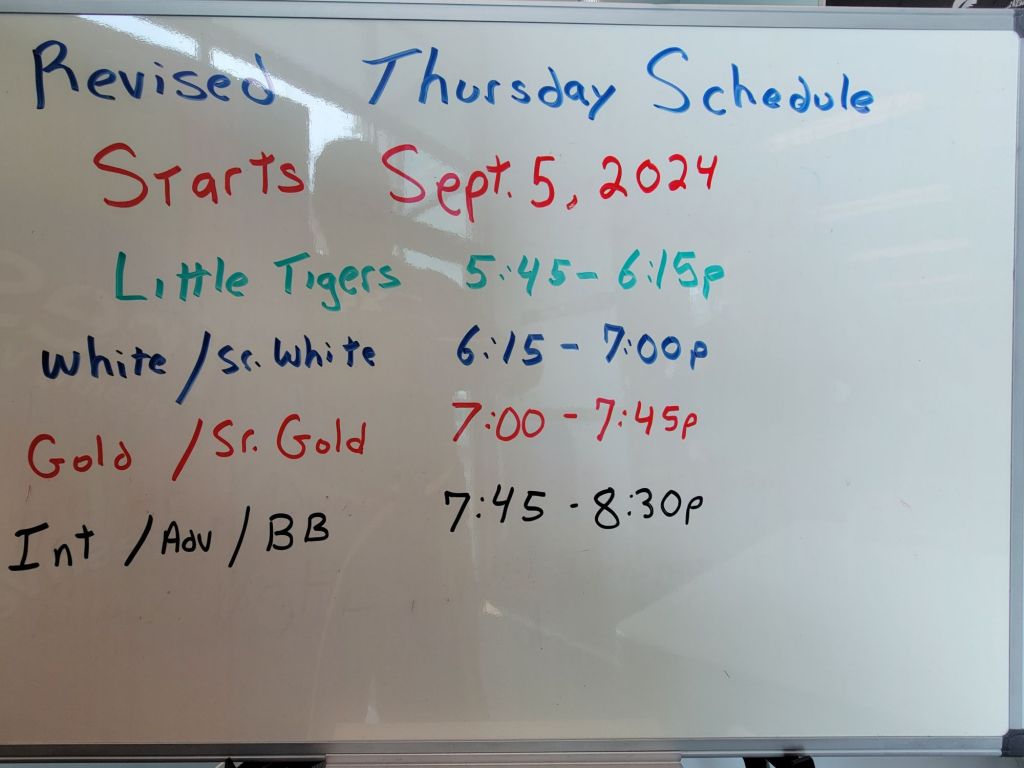 Revised Thursday Schedule
Starts Sept. 5, 2024
Little Tigers 5:45 - 6:15p
White / Sr. White 6:15 - 7:00p
Gold / Sr. Gold 7:00 - 7:45p
Int / Adv / BB 7:45 - 8:30p